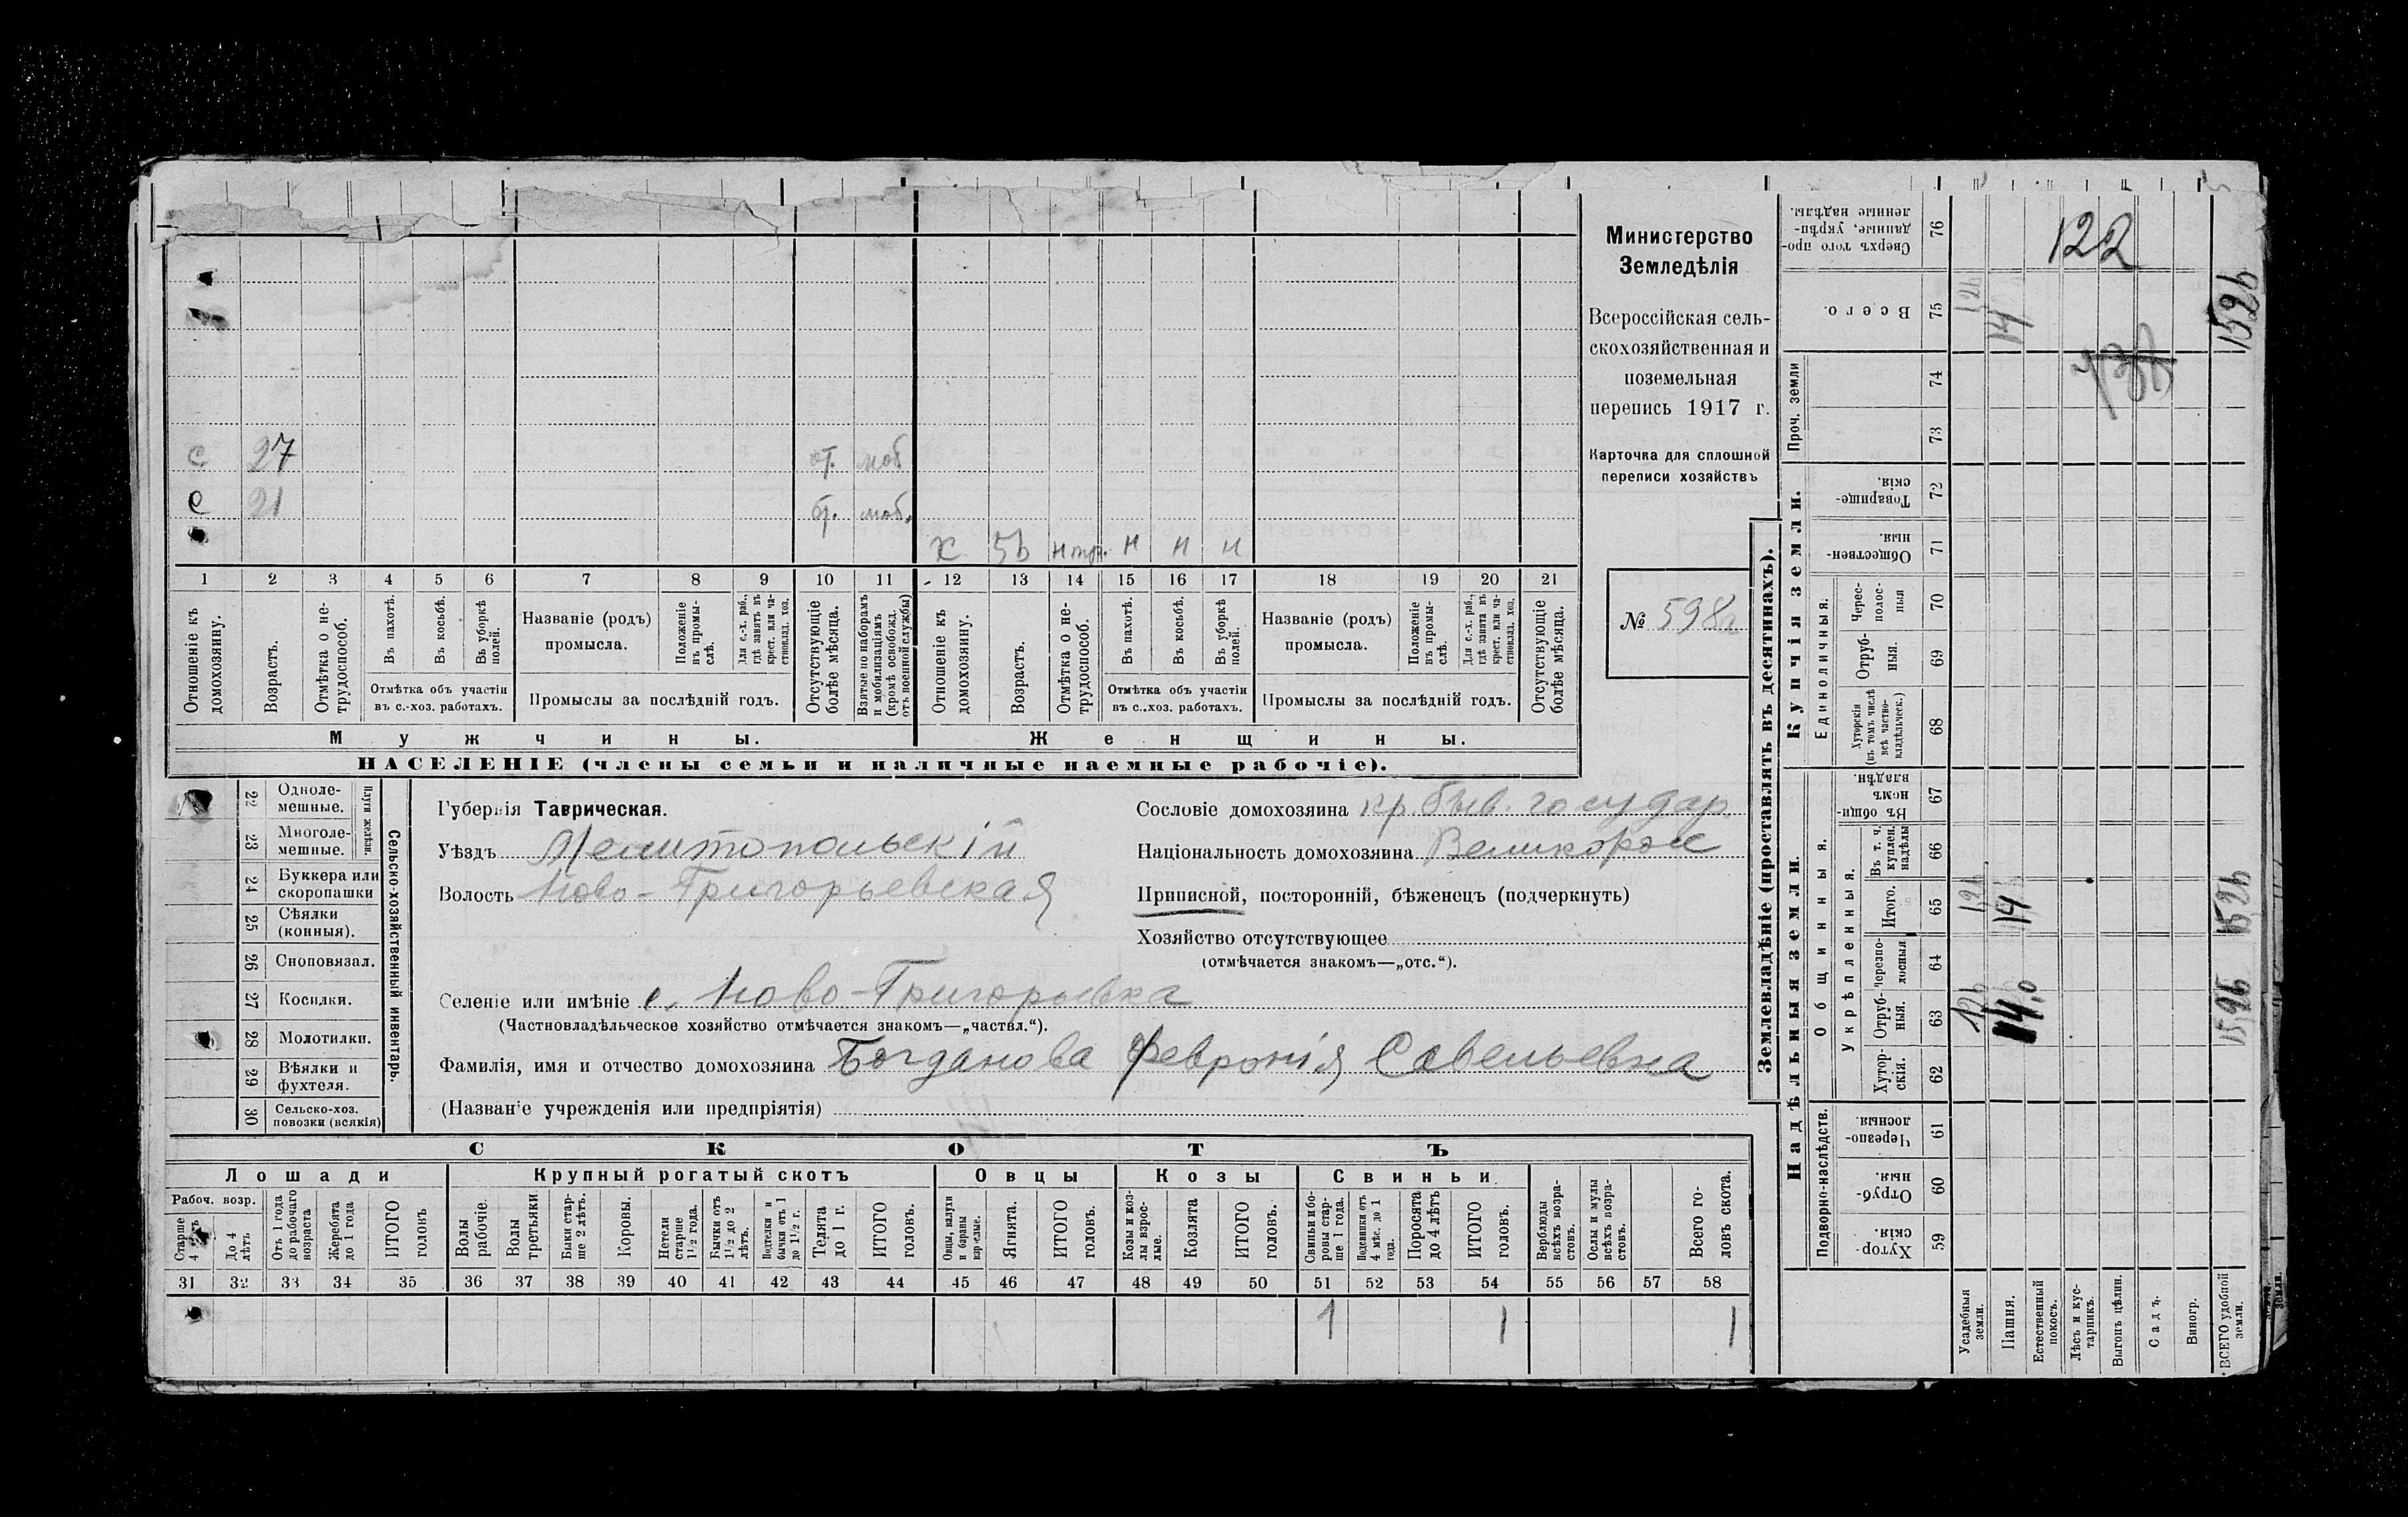 Министерство
Земледѣлія
Всероссійская сель-
скохозяйственная и
поземельная
перепись 1917 г.
Карточка для сплошной
переписи хозяйствъ
№ 598
с 27 от. моб
с 21 от. моб.
х 56 н тр. н н н
1 2 3 4 5 6 7 8 9 10 11 12 13 14 15 16 17 18 19 20 21
Отношеніе къ домохозяину.
Возрастъ.
Отмѣтка о не-трудоспособ.
Въ пахотѣ.
Въ косьбѣ.
Въ уборкѣ полей.
Отмѣтка объ участіи
въ с.-хоз. работахъ.
Названіе (родъ)
промысла.
Положеніе въ промы-слѣ.
Для с.-х. раб., гдѣ занятъ въ крест. или ча-стновлад. хоз.
Промыслы за послѣдній годъ.
Отсутствующіе болѣе мѣсяца.
Взятые по наборамъ и мобилизаціямъ (кромѣ освобожд. отъ военной службы)
Отношеніе къ домохозяину.
Возрастъ.
Отмѣтка о не-трудоспособ.
Въ пахотѣ.
Въ косьбѣ.
Въ уборкѣ полей.
Отмѣтка объ участіи
въ с.-хоз. работахъ.
Названіе (родъ)
промысла.
Положеніе въ промы-слѣ.
Для с.-х. раб., гдѣ занята въ крест. или ча-стновлад. хоз.
Промыслы за послѣдній годъ.
Отсутствующіе болѣе мѣсяца.
Мужчины. Женщины.
НАСЕЛЕНІЕ (члены семьи и наличные наемные рабочіе).
22 Одноле-мешные.
23 Многоле-мешные.
Плуги желѣзн.
24 Буккера или скоропашки
25 Сѣялки (конныя).
26 Сноповязал.
27 Косилки.
28 Молотилки.
29 Вѣялки и фухтеля.
30 Сельско-хоз. повозки (всякія)
Сельско-хозяйственный инвентарь.
Губернія Таврическая.
Уѣздъ Мелитопольскій
Волость Ново-Григорьевская
Сословіе домохозяина кр. быв. государ.
Національность домохозяина Великорос
Приписной, посторонній, бѣженецъ (подчеркнуть)
Хозяйство отсутствующее
(отмѣчается знакомъ—„отс.“).
Селеніе или имѣніе с. Ново-Григорьевка
(Частновладѣльческое хозяйство отмѣчается знакомъ—„частвл.“).
Фамилія, имя и отчество домохозяина Богданова Февронія Савельевна
(Названіе учрежденія или предпріятія)
СКОТЪ
Лошади Крупный рогатый скотъ Овцы Козы Свиньи
Рабоч. возр.
Старше 4 лѣтъ
До 4 лѣтъ
Отъ 1 года до рабочаго возраста
Жеребята до 1 года
ИТОГО головъ
Волы рабочіе.
Волы третьяки
Быки стар-ше 2 лѣтъ.
Коровы.
Нетели старше 1½ года.
Бычки отъ 1½ до 2 лѣтъ.
Подтелки и бычки отъ 1 до 1½ г.
Телята до 1 г.
ИТОГО головъ.
Овцы, валухи и бараны взрослые.
Ягнята.
ИТОГО головъ.
Козы и коз-лы взрос-лые.
Козлята
ИТОГО головъ.
Свиньи и бо-ровы стар-ше 1 года.
Подсвинки отъ 4 мѣс. до 1 года.
Поросята до 4 лѣтъ
ИТОГО головъ.
Верблюды всѣхъ возра-стовъ.
Ослы и мулы всѣхъ возра-стовъ.
Всего го-ловъ скота.
31 32 33 34 35 36 37 38 39 40 41 42 43 44 45 46 47 48 49 50 51 52 53 54 55 56 57 58
1 1 1
Землевладѣніе (проставлять въ десятинахъ).
Купчія земли.
Надѣльныя земли.
Сверхъ того про-данные, укрѣп-ленные надѣлы. 76 122
Всего. 75 14 1526
Проч. земли 74 73
Товарище-скія. 72
Обществен-ныя. 71
Единоличныя.
Черес-полос-ныя 70
Отруб-ныя. 69
Хуторскія (въ томъ числѣ всѣ частно-владѣльческ.) 68
Общинныя.
Въ общи-номъ владѣн. 67
Укрѣпленныя.
Въ т. ч. куплен. надѣлы 66
Итого. 65 14 1526
Черезпо-лосныя 64
Отруб-ныя. 63 14,0 1526
Хутор-скія. 62
Подворно-наслѣдств.
Черезпо-лосныя 61
Отруб-ныя. 60
Хутор-скія. 59
Усадебныя земли.
Пашня.
Естественный покосъ.
Лѣсъ и кус-тарникъ.
Выгонъ цѣлин.
Садъ.
Виногр.
ВСЕГО удобной земли.